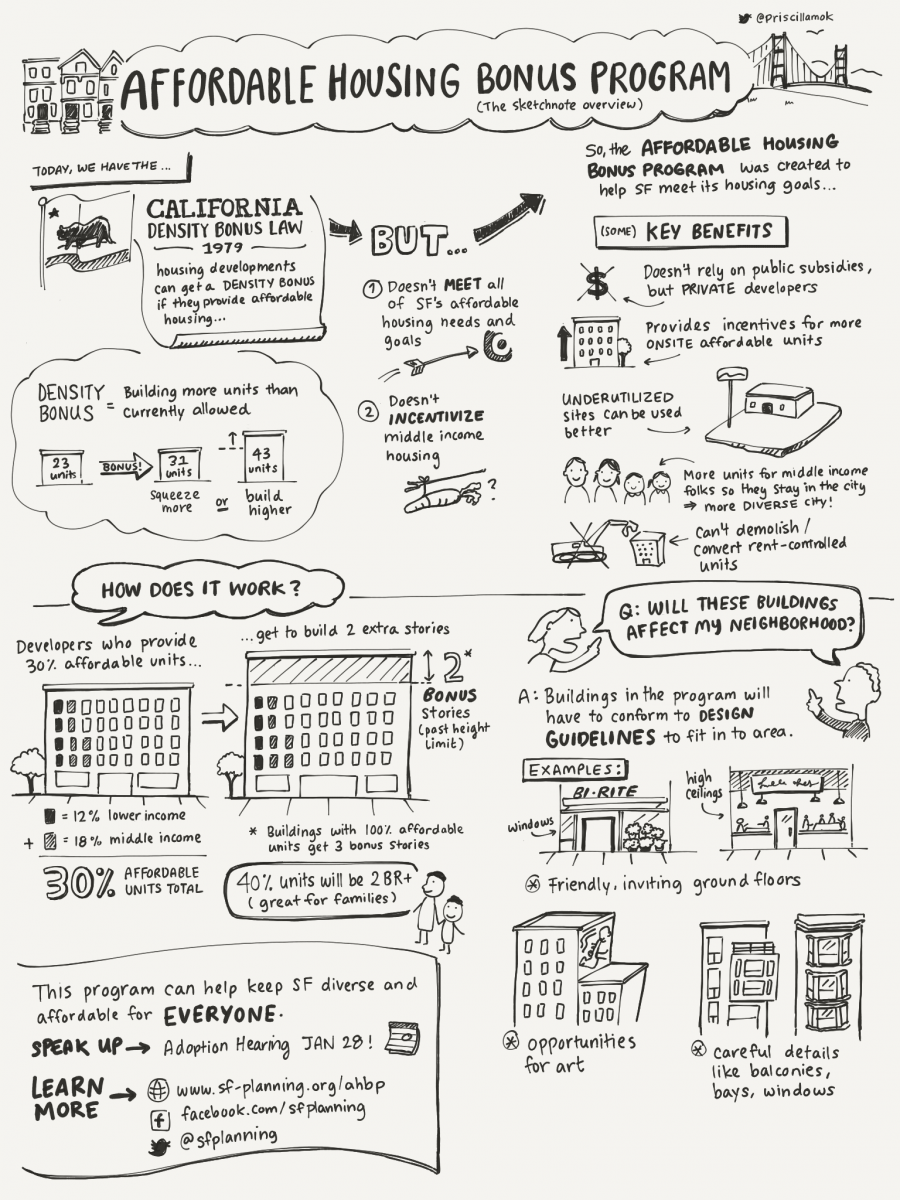 @Priscillamok
AFFORDABLE HOUSING BONUS PROGRAM
(The sketchnote overview)
TODAY, WE HAVE THE ...
CALIFORNIA
DENSITY BONUS LAW
1979
housing developments
can get a DENSITY BONUS
if they provide affordable
housing...
BUT...
1 Doesn't MEET all
of SF's affordable
housing needs and
goals
2 Doesn't
INCENTIVIZE
middle income
housing
?
DENSITY
BONUS = Building more units than
currently allowed
23
units
BONUS!
31
units
43
units
squeeze
more
or
build
higher
So, the AFFORDABLE HOUSING
BONUS PROGRAM was created to
help SF meet its housing goals...
(SOME) KEY BENEFITS
$
Doesn't rely on public subsidies,
but PRIVATE developers
Provides incentives for more
ONSITE affordable units
UNDERUTILIZED
sites can be used
better
More units for middle income
folks so they stay in the city
⇒ more DIVERSE CITY!
Can't demolish /
convert rent-controlled
units
HOW DOES IT WORK?
Developers who provide
30% affordable units...
...get to build 2 extra stories
2*
BONUS
Stories
(past height
limit)
= 12% lower income
+ = 18% middle income
30% AFFORDABLE
UNITS TOTAL
* Buildings with 100% affordable
units get 3 bonus stories
40% units will be 2 BR+
(great for families)
Q: WILL THESE BUILDINGS
AFFECT MY NEIGHBORHOOD?
A: Buildings in the program will
have to conform to DESIGN
GUIDELINES to fit in to area.
EXAMPLES:
BI-RITE
windows
high
ceilings
* Friendly, inviting ground floors
* opportunities
for art
* careful details
like balconies,
bays, windows
This program can help keep SF diverse and
affordable for EVERYONE.
SPEAK UP → Adoption Hearing JAN 28!
LEARN
MORE → www.sf-planning.org/ahbp
f facebook.com/sfplanning
@sfplanning